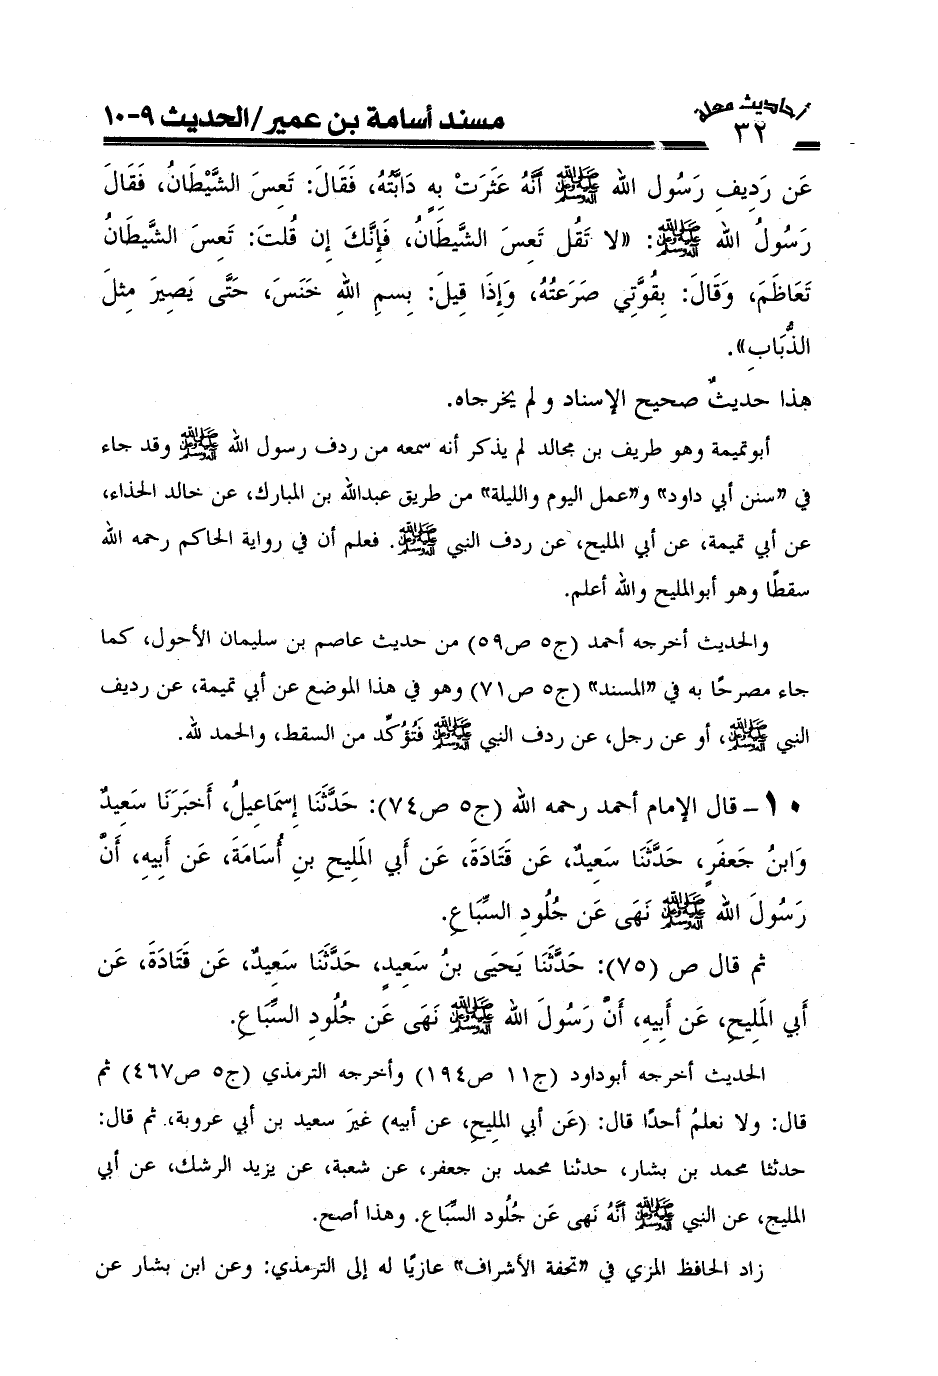 أحاديث معلة
٣٢
مسند أسامة بن عمير/الحديث ٩-١٠
عَن رَدِيفِ رَسُولِ اللهِ ﷺ أَنَّهُ عَثَرَتْ بِهِ دَابَّتُهُ، فَقَالَ: تَعِسَ الشَّيْطَانُ، فَقَالَ
رَسُولُ اللهِ ﷺ: «لا تَقُل تَعِسَ الشَّيطَانُ، فَإِنَّكَ إِن قُلتَ: تَعِسَ الشَّيطَانُ
تَعَاظَمَ، وَقَالَ: بِقُوَّتِي صَرَعتُهُ، وَإِذَا قِيلَ: بِسمِ اللهِ خَنَسَ، حَتَّى يَصِيرَ مِثلَ
الذُّبَابِ».
هذا حديثٌ صحيح الإسناد ولم يخرجاه.
أبوتميمة وهو طريف بن مجالد لم يذكر أنه سمعه من ردف رسول الله ﷺ وقد جاء
في «سنن أبي داود» و«عمل اليوم والليلة» من طريق عبدالله بن المبارك، عن خالد الحذاء،
عن أبي تميمة، عن أبي المليح، عن ردف النبي ﷺ. فعلم أن في رواية الحاكم رحمه الله
سقطًا وهو أبوالمليح والله أعلم.
والحديث أخرجه أحمد (ج٥ ص٥٩) من حديث عاصم بن سليمان الأحول، كما
جاء مصرحًا به في «المسند» (ج٥ ص٧١) وهو في هذا الموضع عن أبي تميمة، عن رديف
النبي ﷺ، أو عن رجل، عن ردف النبي ﷺ فَتُؤُكِّد من السقط، والحمد لله.
١٠- قال الإمام أحمد رحمه الله (ج٥ ص٧٤): حَدَّثَنَا إِسمَاعِيلُ، أَخبَرَنَا سَعِيدٌ
وَابنُ جَعفَرٍ، حَدَّثَنَا سَعِيدٌ، عَن قَتَادَةَ، عَن أَبِي المَلِيحِ بنِ أُسَامَةَ، عَن أَبِيهِ، أَنَّ
رَسُولَ اللهِ ﷺ نَهَى عَن جُلُودِ السِّبَاعِ.
ثم قال ص (٧٥): حَدَّثَنَا يَحيَى بنُ سَعِيدٍ، حَدَّثَنَا سَعِيدٌ، عَن قَتَادَةَ، عَن
أَبِي المَلِيحِ، عَن أَبِيهِ، أَنَّ رَسُولَ اللهِ ﷺ نَهَى عَن جُلُودِ السِّبَاعِ.
الحديث أخرجه أبوداود (ج١١ ص١٩٤) وأخرجه الترمذي (ج٥ ص٤٦٧) ثم
قال: ولا نعلمُ أحدًا قال: (عَن أبي المليحِ، عن أبيه) غيرَ سعيد بن أبي عروبة، ثم قال:
حدثنا محمد بن بشار، حدثنا محمد بن جعفر، عن شعبة، عن يزيد الرشك، عن أبي
المليح، عن النبي ﷺ أنَّهُ نَهى عَن جُلُود السِّبَاع. وهذا أصح.
زاد الحافظ المزي في «تحفة الأشراف» عازيًا له إلى الترمذي: وعن ابن بشار عن